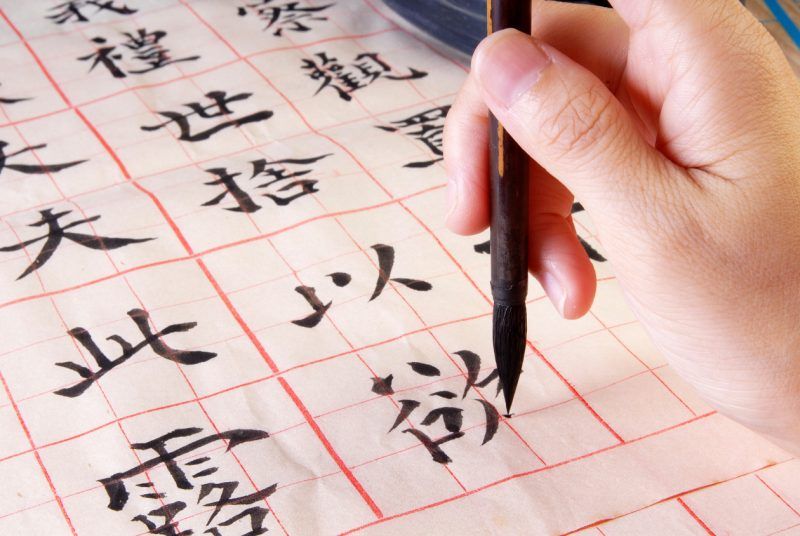 察觀
我禮世捨以欲
夫此露